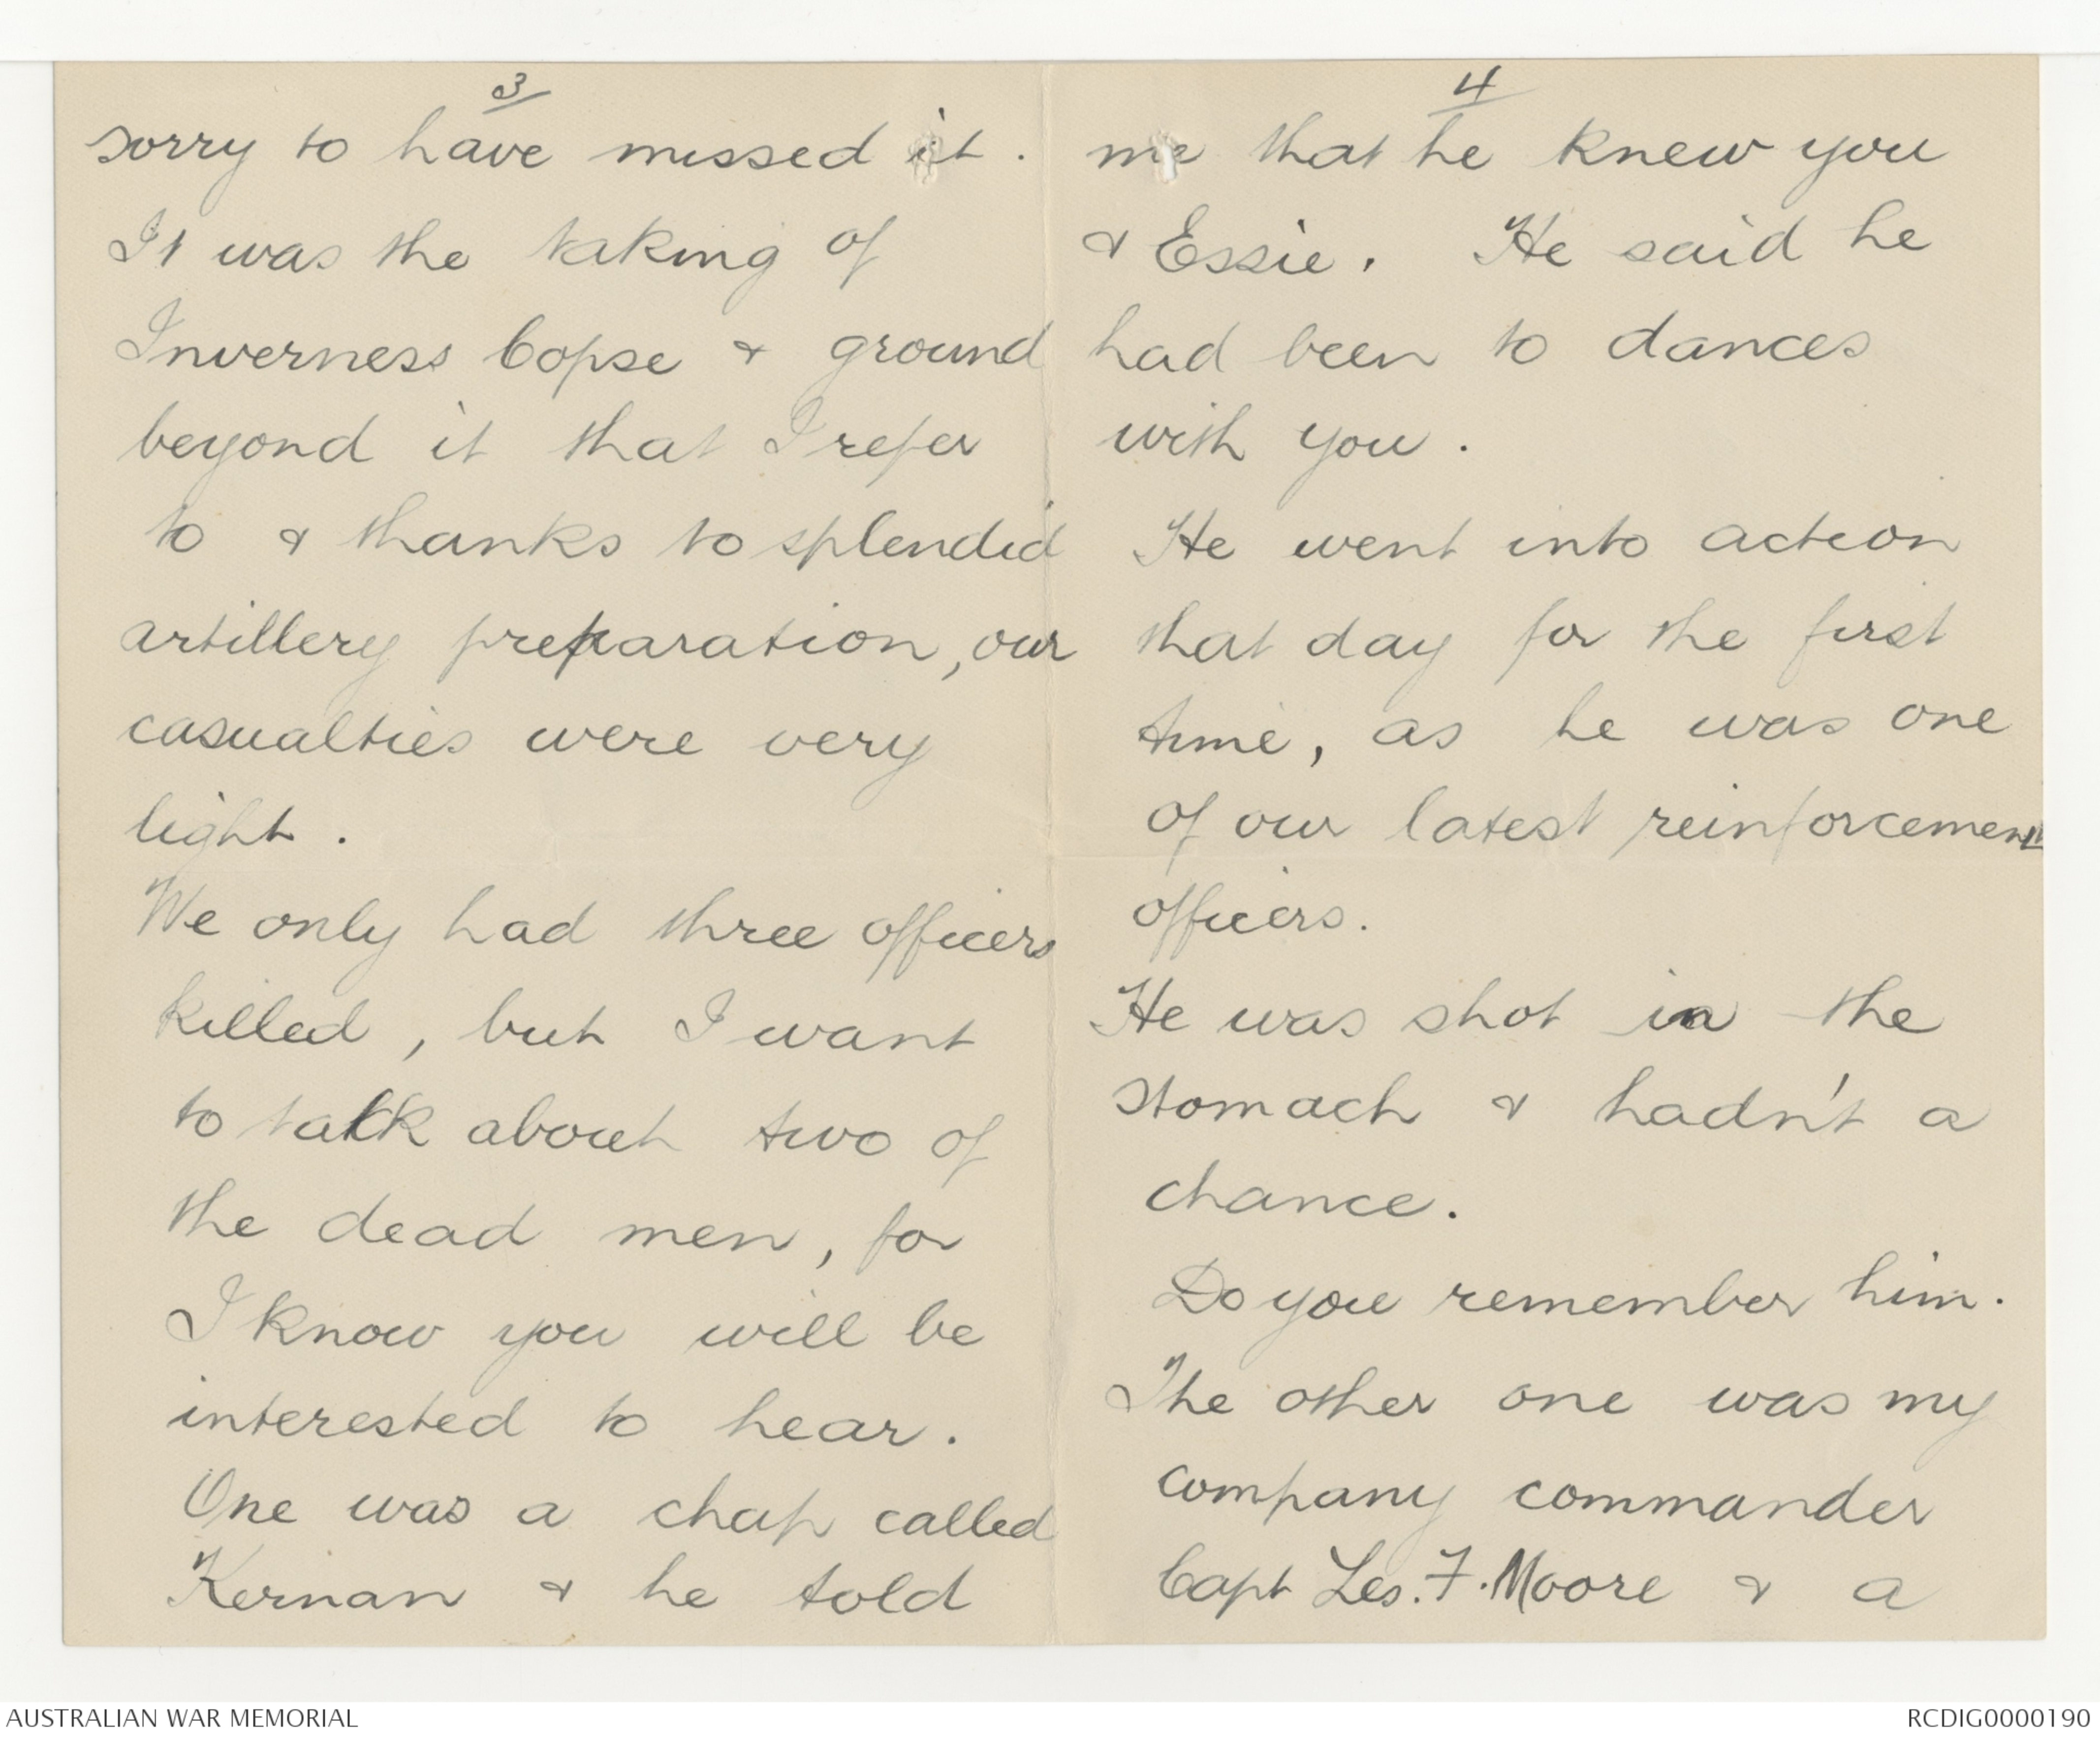 3
sorry to have missed it.
It was the taking of
Inverness Copse & ground
beyond it that I refer
to & thanks to splendid
artillery preparation, our
casualties were very
light.
We only had three officers
killed, but I want
to talk about two of
the dead men, for
I know you will be
interested to hear.
One was a chap called
Kernan & he told
4
me that he knew you
& Essie. He said he
had been to dances
with you.
He went into action
that day for the first
time, as he was one
of our latest reinforcement
officers.
He was shot in the
stomach & hadn't a
chance.
Do you remember him.
The other one was my
company commander
Capt Les. F. Moore & a
AUSTRALIAN WAR MEMORIAL
RCDIG0000190